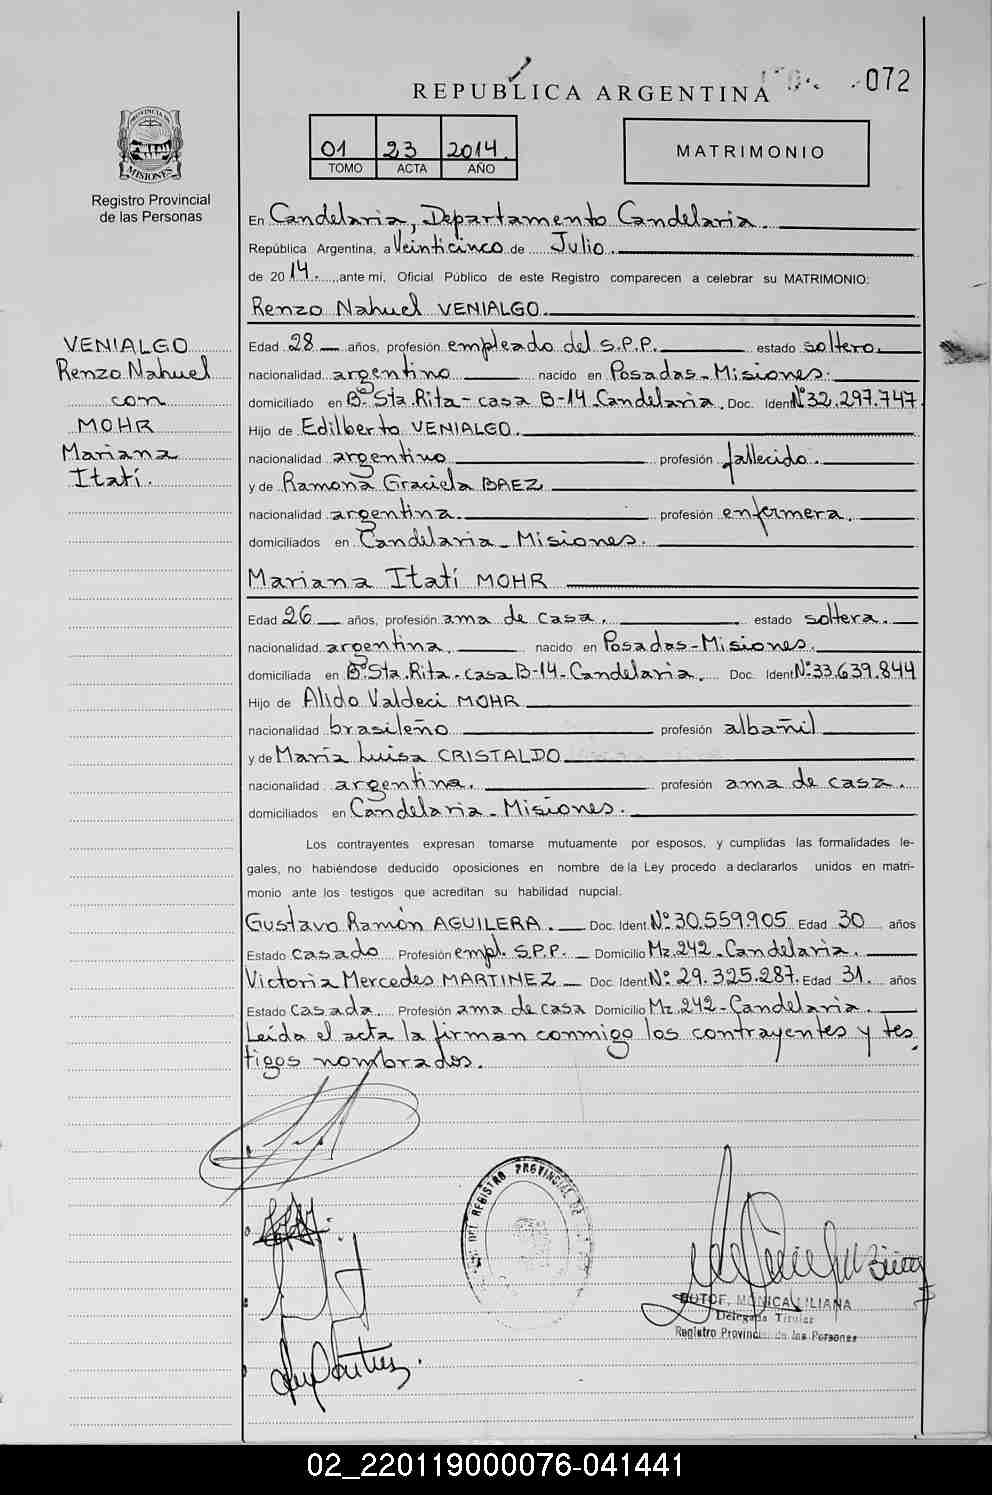 072
REPUBLICA ARGENTINA
PROVINCIA DE
MISIONES
Registro Provincial
de las Personas
01 23 2014.
TOMO ACTA AÑO
MATRIMONIO
En Candelaria, Departamento Candelaria.
República Argentina, a Veinticinco de Julio.
de 2014. ante mi, Oficial Público de este Registro comparecen a celebrar su MATRIMONIO:
Renzo Nahuel VENIALGO.
VENIALGO
Renzo Nahuel
con
MOHR
Mariana
Itatí.
Edad 28 años, profesión empleado del S.P.P. estado soltero.
nacionalidad argentino nacido en Posadas-Misiones.
domiciliado en Bº Sta.Rita-casa B-14 Candelaria. Doc. Ident Nº32.297.747.
Hijo de Edilberto VENIALGO.
nacionalidad argentino profesión fallecido.
y de Ramona Graciela BAEZ
nacionalidad argentina. profesión enfermera.
domiciliados en Candelaria-Misiones.
Mariana Itatí MOHR
Edad 26 años, profesión ama de casa. estado soltera.
nacionalidad argentina. nacido en Posadas-Misiones.
domiciliada en Bº Sta.Rita-casa B-14-Candelaria. Doc. Ident Nº33.639.844
Hijo de Alido Valdeci MOHR
nacionalidad brasileño profesión albañil
y de María Luisa CRISTALDO
nacionalidad argentina. profesión ama de casa.
domiciliados en Candelaria-Misiones.
Los contrayentes expresan tomarse mutuamente por esposos, y cumplidas las formalidades le-
gales, no habiéndose deducido oposiciones en nombre de la Ley procedo a declararlos unidos en matri-
monio ante los testigos que acreditan su habilidad nupcial.
Gustavo Ramón AGUILERA. Doc. Ident. Nº 30.559.905 Edad 30 años
Estado casado Profesión empl. S.P.P. Domicilio Mz.242-Candelaria.
Victoria Mercedes MARTINEZ Doc. Ident. Nº 29.325.287. Edad 31. años
Estado Casada. Profesión ama de casa Domicilio Mz.242-Candelaria.
Leída el acta la firman conmigo los contrayentes y tes
tigos nombrados.
DEL REGISTRO PROVINCIAL DE
MONICA LILIANA
Delegada Titular
Registro Provincial de las Personas
02_220119000076-041441